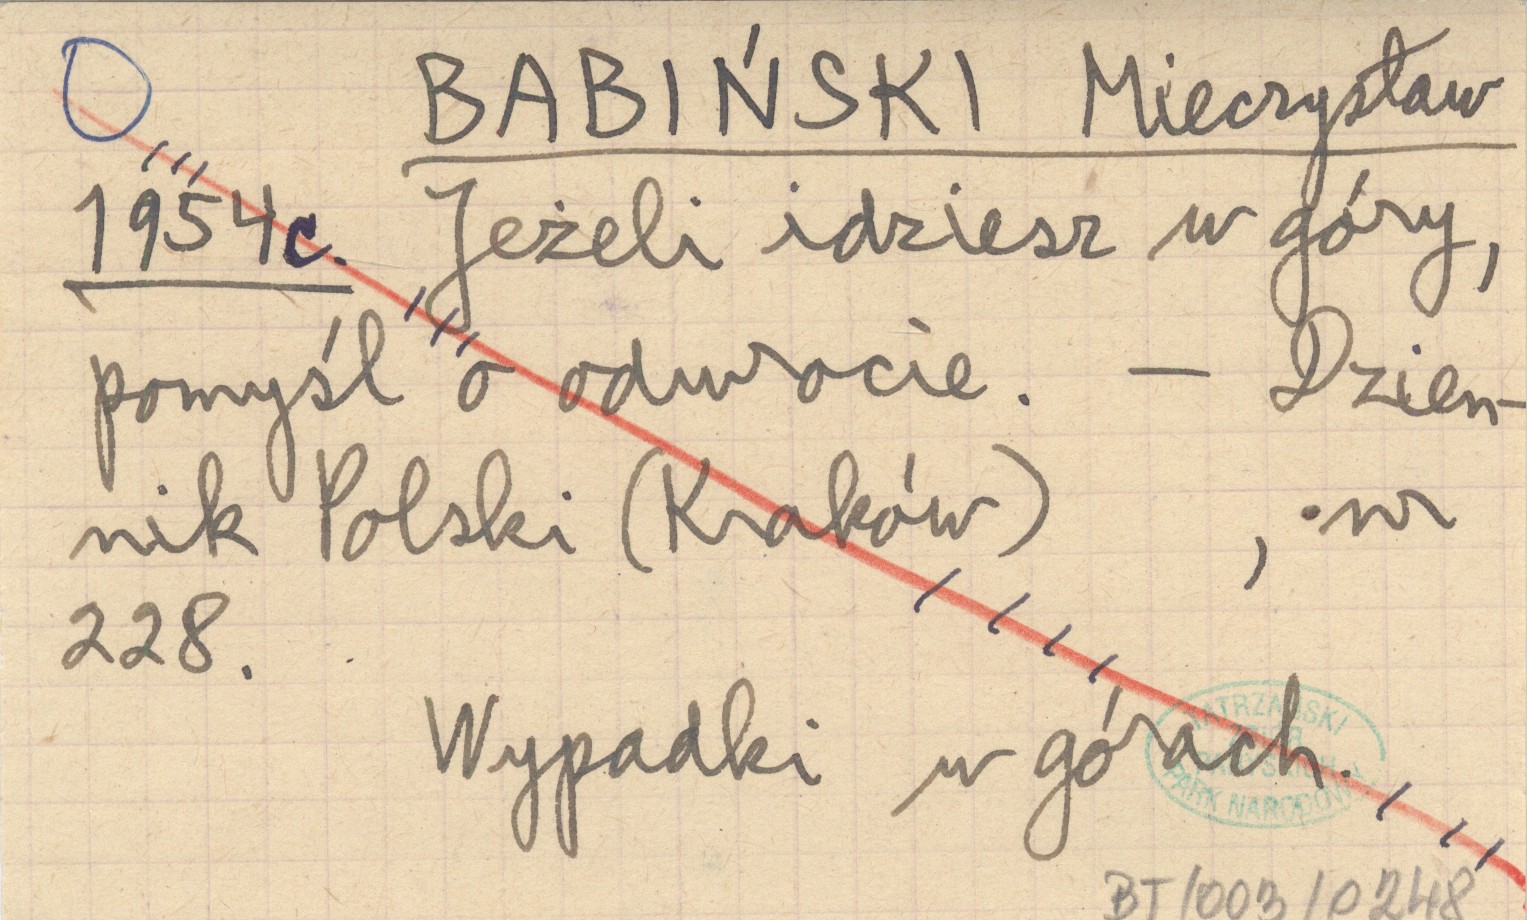 BABIŃSKI Mieczysław
1954c. Jeżeli idziesz w góry,
pomyśl o odwrocie. — Dzien-
nik Polski (Kraków) , nr
228.
Wypadki w górach.
TATRZAŃSKI
PARK NARODOWY
BT/003/0248